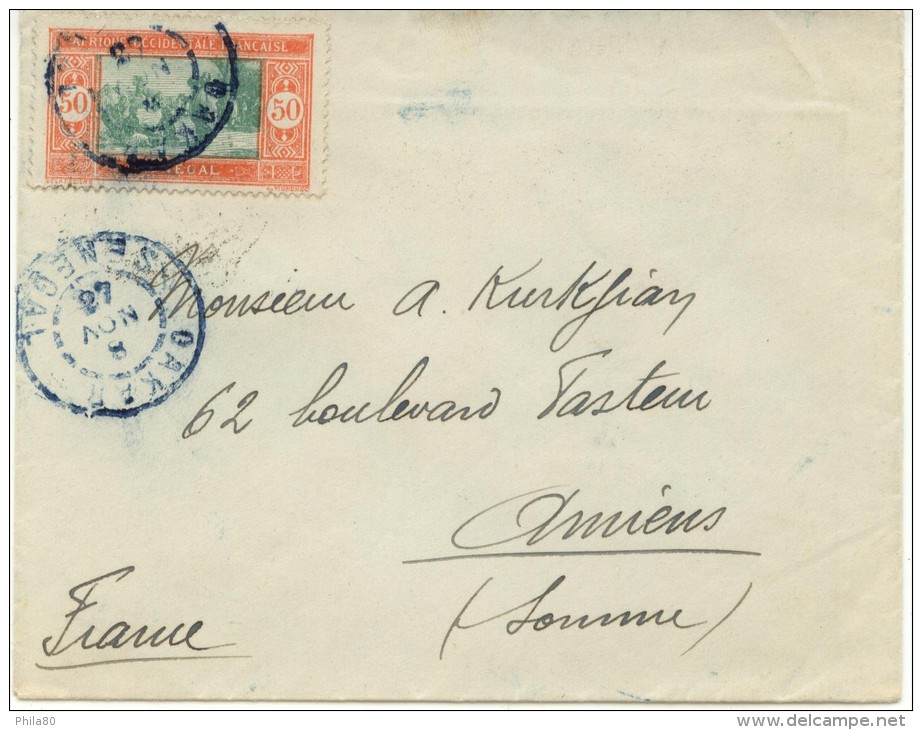 AFRIQUE OCCIDENTALE FRANÇAISE
50 50
SÉNÉGAL
DAKAR
SENEGAL
8
NOV
DAKAR
Monsieur A. Kurkjian
62 boulevard Pasteur
Amiens
(Somme)
France
Phila80
www.delcampe.net